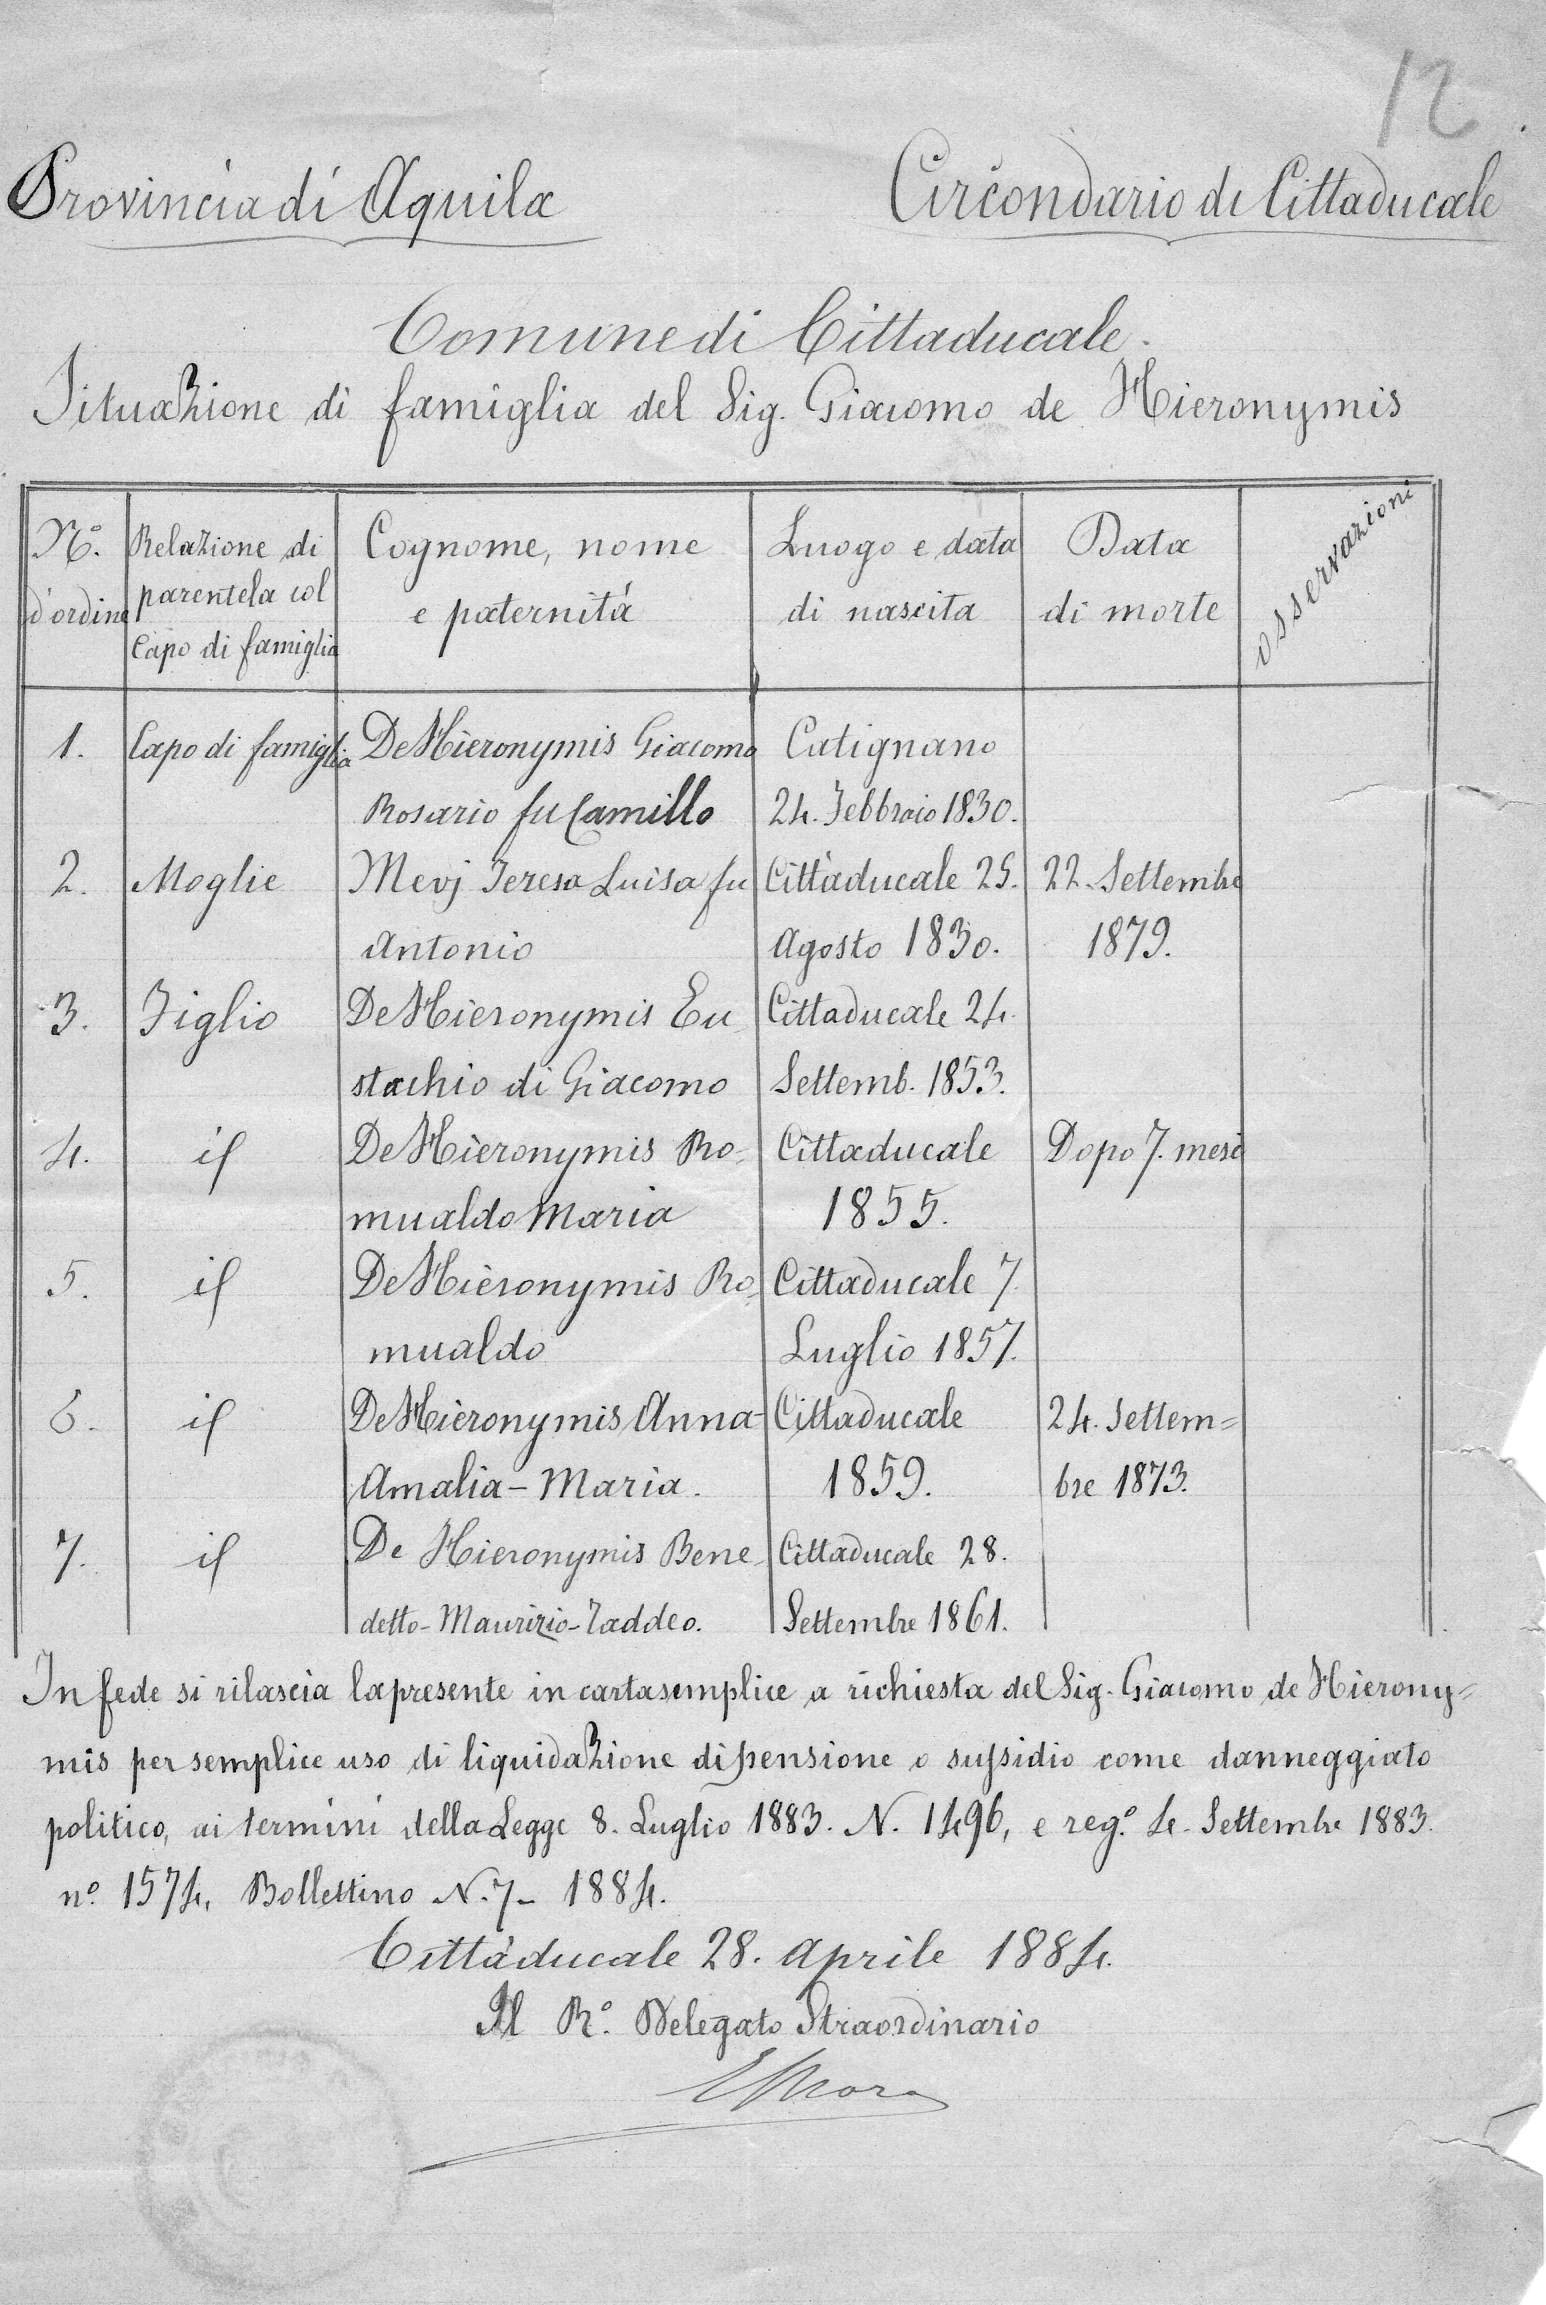 12.
Provincia di Aquila
Circondario di Cittaducale
Comune di Cittaducale.
Situazione di famiglia del Sig. Giacomo de Hieronymis
N.º d'ordine
Relazione di parentela col Capo di famiglia
Cognome, nome e paternità
Luogo e data di nascita
Data di morte
osservazioni
1. Capo di famiglia De Hieronymis Giacomo Catignano
Rosario fu Camillo 24. Febbraio 1830.
2. Moglie Mevj Teresa Luisa fu Cittaducale 25. 22. Settembre
Antonio Agosto 1830. 1879.
3. Figlio De Hieronymis Eu Cittaducale 24.
stachio di Giacomo Settemb. 1853.
4. id De Hieronymis Ro= Cittaducale Dopo 7. mesi
mualdo Maria 1855.
5. id De Hieronymis Ro= Cittaducale 7.
mualdo Luglio 1857.
6. id De Hieronymis Anna- Cittaducale 24. Settem=
Amalia - Maria. 1859. bre 1873.
7. id De Hieronymis Bene Cittaducale 28.
detto - Maurizio - Taddeo. Settembre 1861.
In fede si rilascia la presente in carta semplice a richiesta del Sig. Giacomo de Hierony=
mis per semplice uso di liquidazione di pensione o sussidio come danneggiato
politico, ai termini della Legge 8. Luglio 1883. N. 1496, e reg.º 4. Settembre 1883.
nº. 1574, Bollettino N. 7 - 1884.
Cittaducale 28. Aprile 1884.
Il R.º Delegato Straordinario